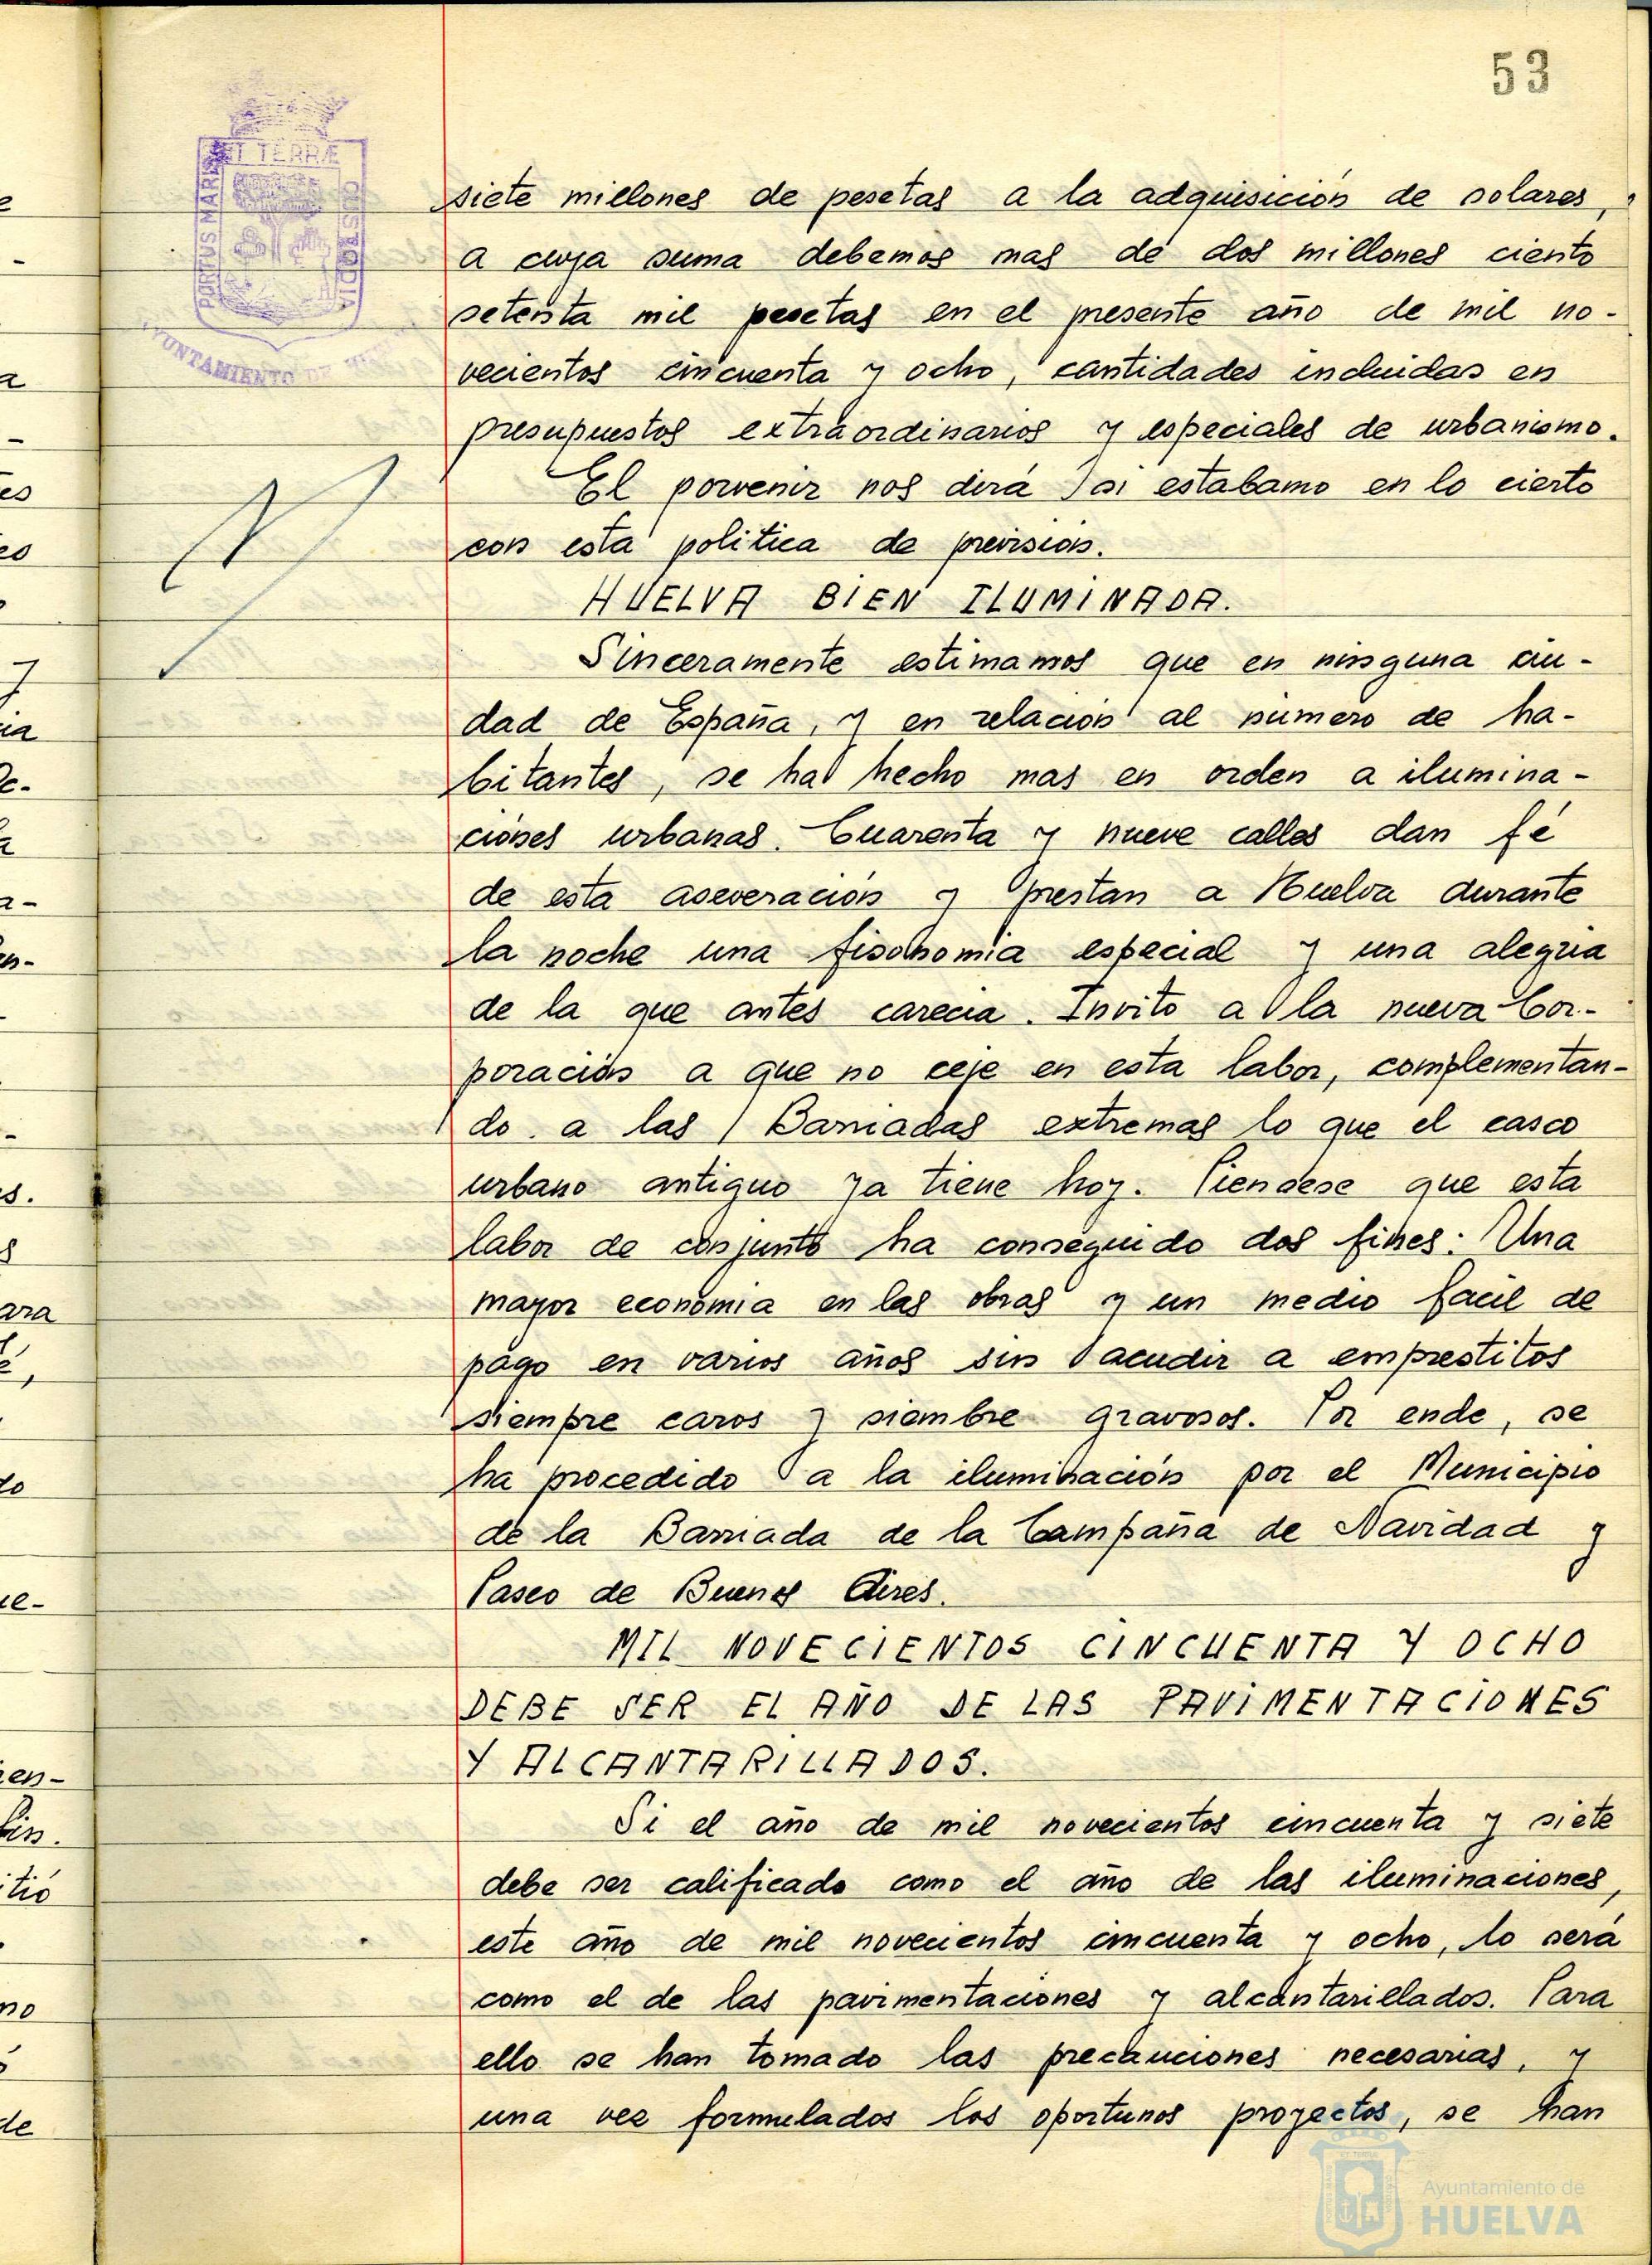 53
ET TERRÆ
PORTUS MARIS
CUSTODIA
AYUNTAMIENTO DE
siete millones de pesetas a la adquisición de solares,
a cuya suma debemos mas de dos millones ciento
setenta mil pesetas en el presente año de mil no-
vecientos cincuenta y ocho, cantidades incluidas en
presupuestos extraordinarios y especiales de urbanismo.
El porvenir nos dirá si estabamo en lo cierto
con esta politica de prevision.
HUELVA BIEN ILUMINADA.
Sinceramente estimamos que en ninguna ciu-
dad de España, y en relación al número de ha-
bitantes, se ha hecho mas en orden a ilumina-
ciones urbanas. Cuarenta y nueve calles dan fé
de esta aseveración y prestan a Huelva durante
la noche una fisonomia especial y una alegria
de la que antes carecia. Invito a la nueva Cor-
poración a que no ceje en esta labor, complementan-
do a las Barriadas extremas lo que el casco
urbano antiguo ya tiene hoy. Piendese que esta
labor de conjunto ha conseguido dos fines: Una
mayor economia en las obras y un medio facil de
pago en varios años sin acudir a emprestitos
siempre caros y siembre gravosos. Por ende, se
ha procedido a la iluminación por el Municipio
de la Barriada de la Campaña de Navidad y
Paseo de Buenos Aires.
MIL NOVECIENTOS CINCUENTA Y OCHO
DEBE SER EL AÑO DE LAS PAVIMENTACIONES
Y ALCANTARILLADOS.
Si el año de mil novecientos cincuenta y siete
debe ser calificado como el año de las iluminaciones,
este año de mil novecientos cincuenta y ocho, lo será
como el de las pavimentaciones y alcantarillados. Para
ello se han tomado las precauciones necesarias, y
una vez formulados los oportunos proyectos, se han
Ayuntamiento de
HUELVA